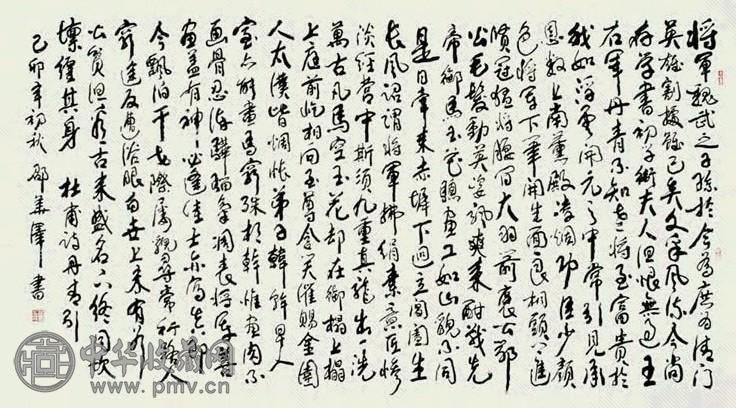 將軍魏武之子孫於今為庶為清門
英雄割據雖已矣文采風流今尚
存學書初學衛夫人但恨無過王
右軍丹青不知老將至富貴於
我如浮雲開元之中常引見承
恩數上南薰殿凌烟功臣少顏
色將軍下筆開生面良相頭上進
賢冠猛將腰間大羽箭褒公鄂
公毛髮動英姿颯爽來酣戰先
帝御馬玉花驄畫工如山貌不同
是日牽來赤墀下迥立閶闔生
長風詔謂將軍拂絹素意匠慘
淡經營中斯須九重真龍出一洗
萬古凡馬空玉花却在御榻上榻
上庭前屹相向至尊含笑催賜金圉
人太僕皆惆悵弟子韓幹早入
室亦能畫馬窮殊相幹惟畫肉不
畫骨忍使驊騮氣凋喪將軍善
畫蓋有神必逢佳士亦寫真即
今飄泊干戈際屢貌尋常行路人
窮途反遭俗眼白世上未有如
公貧但看古來盛名下終日坎
壈纏其身 杜甫詩丹青引
己卯年初秋 邵華澤書
中华收藏网
www.pmv.cn